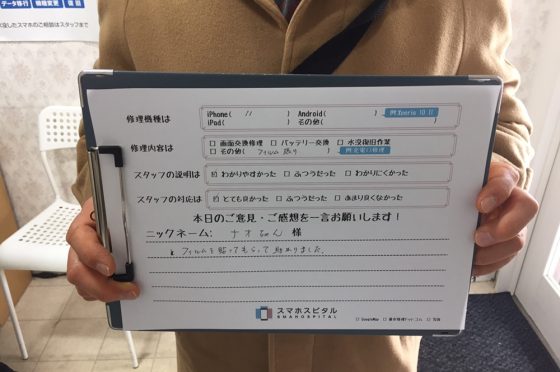 データ移行 機種変更 復旧
水没したスマホのご相談はスタッフまで
修理機種は iPhone( 11 ) Android( ) 例:Xperia 10 II
iPad( ) その他( )
修理内容は □ 画面交換修理 □ バッテリー交換 □ 水没復旧作業
□ その他( フィルム貼り ) 例:充電口修理
スタッフの説明は ☑ わかりやすかった □ ふつうだった □ わかりにくかった
スタッフの対応は ☑ とても良かった □ ふつうだった □ あまり良くなかった
本日のご意見・ご感想を一言お願いします!
ニックネーム: ナオちゃん 様
フィルムを貼ってもらって助かりました。
スマホスピタル
SMAHOSPITAL
□ GoogleMap □ 修理ドットコム □ 店頭